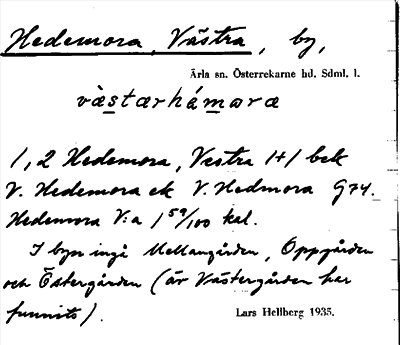 Hedemora, Västra, by,
Ärla sn. Österrekarne hd. Sdml. l.
västærhámoræ
1, 2 Hedemora, Vestra 1+1 bek
V. Hedemora ek V. Hedmora G74.
Hedemora V:a 1 59/100 kal.
I byn ingå Mellangården, Oppgården
och Östergården (är Västergården har
funnits).
Lars Hellberg 1935.